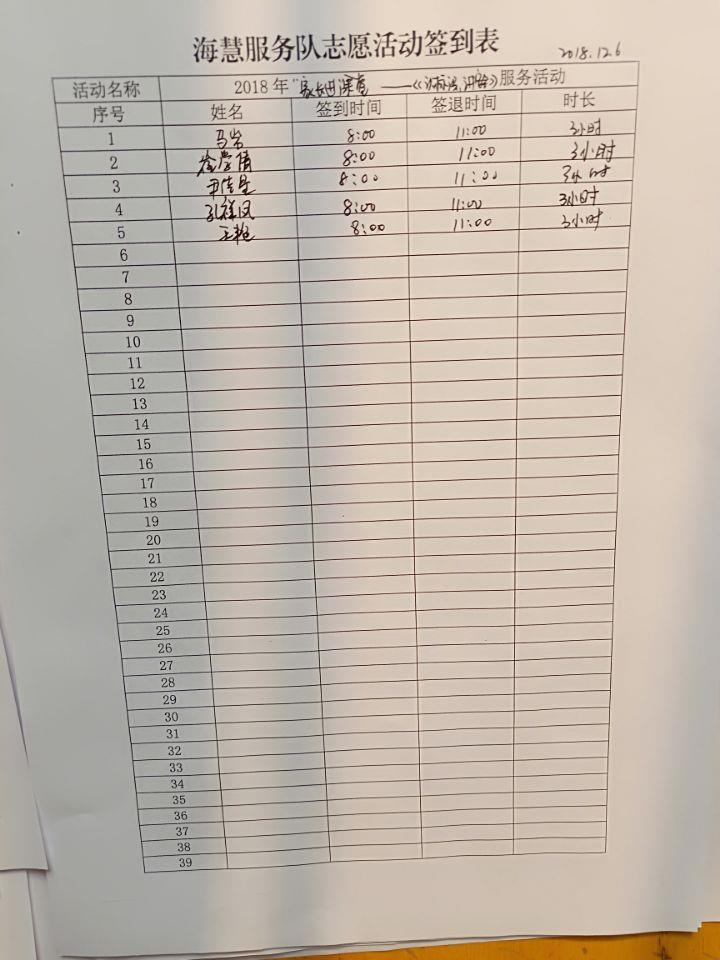 海慧服务队志愿活动签到表
2018.12.6
活动名称 2018年“ ——《 》服务活动
序号 姓名 签到时间 签退时间 时长
1 马岩 8:00 11:00 3小时
2 8:00 11:00 3小时
3 8:00 11:00 3小时
4 孔祥凤 8:00 11:00 3小时
5 王艳 8:00 11:00 3小时
6
7
8
9
10
11
12
13
14
15
16
17
18
19
20
21
22
23
24
25
26
27
28
29
30
31
32
33
34
35
36
37
38
39